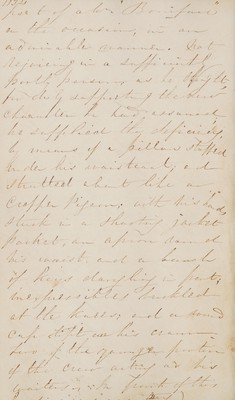 part of a live "Bonifaces"
on the occasion, in an
admirable manner. Not
rejoicing in a sufficiently
portly person, as he thought
for duly supporting the new
character he had assumed
he supplied the deficiency
by means of a pillow stuffed
under his waistcoat, and
strutted about like a
Cropper Pigeon; with his hands
stuck in a shooting jacket
pocket, an apron round
his waist and a bunch
of keys dangling in front,
inexpressibles buckled
at the knees; and a round
cap stuck on his crown
two of the younger portion
of the crew acting as his
waiters. In front of this